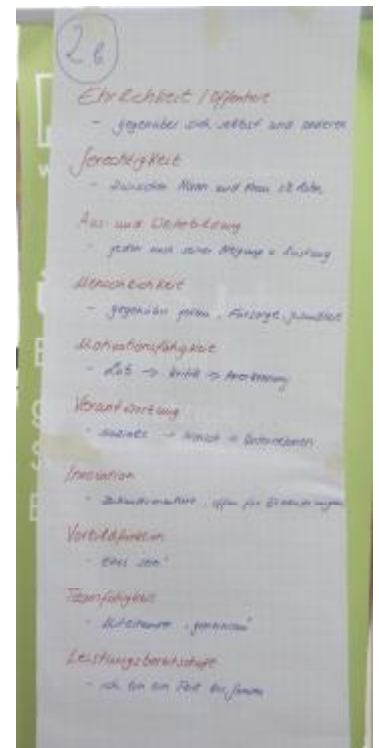 2b
Ehrlichkeit / Offenheit
- gegenüber sich selbst und anderen
Gerechtigkeit
- zwischen Mann und Frau
Aus- und Weiterbildung
- jeder nach seiner Neigung
Menschlichkeit
- gegenüber jedem, Fürsorge,
Motivationsfähigkeit
- Lob → Kritik → Anerkennung
Verantwortung
- soziales → Mensch + Unternehmen
Innovation
- zukunftsorientiert, offen für
Vorbildfunktion
Teamfähigkeit
- Miteinander „gemeinsam“
Leistungsbereitschaft
- ich bin ein Teil des Ganzen